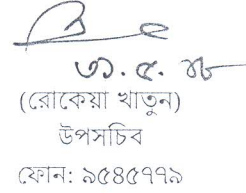 ৩১. ৫. ২৮
(রোকেয়া খাতুন)
উপসচিব
ফোন: ৯৫৪৫৭৭৯